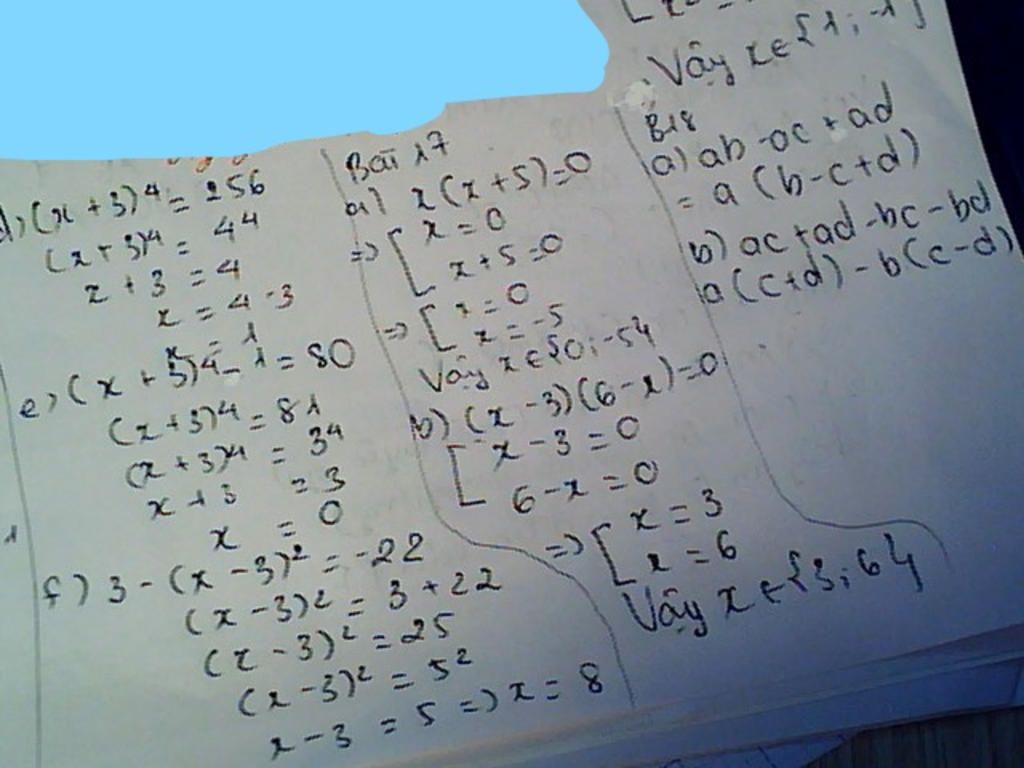 d) (x + 3)⁴ = 256
(x + 3)⁴ = 4⁴
x + 3 = 4
x = 4 - 3
x = 1
e) (x + 3)⁴ - 1 = 80
(x + 3)⁴ = 81
(x + 3)⁴ = 3⁴
x + 3 = 3
x = 0
f) 3 - (x - 3)² = -22
(x - 3)² = 3 + 22
(x - 3)² = 25
(x - 3)² = 5²
x - 3 = 5 => x = 8
Bài 17
a) x (x + 5) = 0
=> [ x = 0
x + 5 = 0
=> [ x = 0
x = -5
Vậy x ∈ {0; -5}
b) (x - 3)(6 - x) = 0
[ x - 3 = 0
6 - x = 0
=> [ x = 3
x = 6
Vậy x ∈ {3; 6}
Vậy x ∈ {1; -1}
B18
a) ab - ac + ad
= a (b - c + d)
b) ac + ad - bc - bd
a (c + d) - b (c - d)